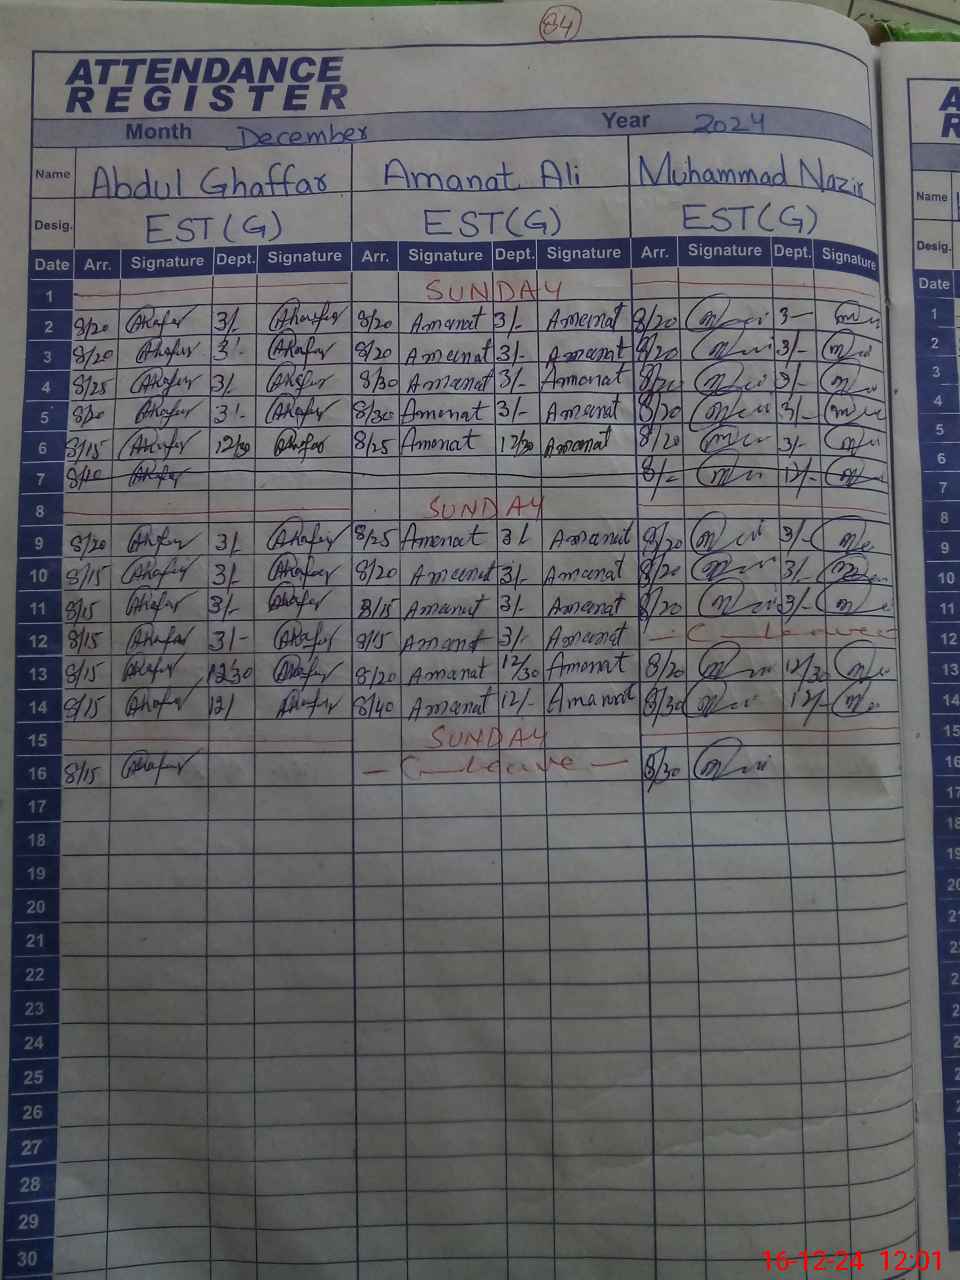 84
ATTENDANCE
REGISTER
Month December Year 2024
Name Abdul Ghaffar Amanat Ali Muhammad Nazir Name
Desig. EST(G) EST(G) EST(G) Desig.
Date Arr. Signature Dept. Signature Arr. Signature Dept. Signature Arr. Signature Dept. Signature Date
1 SUNDAY 1
2 8/20 3/- 8/20 Amanat 3/- Amanat 8/20 3- 2
3 8/20 3/- 8/20 Amanat 3/- Amanat 8/20 3/- 3
4 8/25 3/- 8/30 Amanat 3/- Amanat 8/20 3/- 4
5 8/20 3/- 8/30 Amanat 3/- Amanat 8/20 3/- 5
6 8/15 12/30 8/25 Amanat 12/30 Amanat 8/20 3/- 6
7 8/10 8/- 12/- 7
8 SUNDAY 8
9 8/20 3/- 8/25 Amanat 3/- Amanat 8/20 3/- 9
10 8/15 3/- 8/20 Amanat 3/- Amanat 8/20 3/- 10
11 8/15 3/- 8/15 Amanat 3/- Amanat 8/20 3/- 11
12 8/15 3/- 8/15 Amanat 3/- Amanat - C-Leave 12
13 8/15 12/30 8/20 Amanat 12/30 Amanat 8/20 12/30 13
14 8/15 12/ 8/40 Amanat 12/- Amanat 8/30 12/- 14
15 SUNDAY 15
16 8/15 - C-Leave - 8/30 16
17 17
18 18
19 19
20 20
21 21
22
23
24
25
26
27
28
29
30
16-12-24 12:01